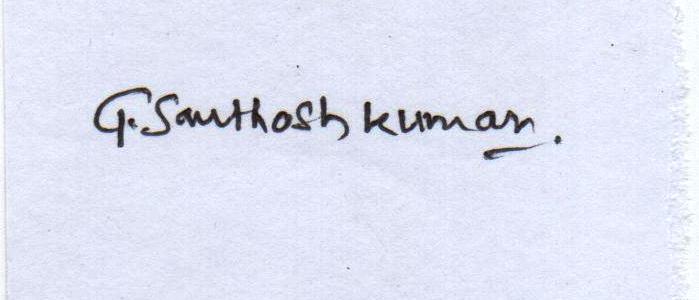 G. Santhosh kumar.